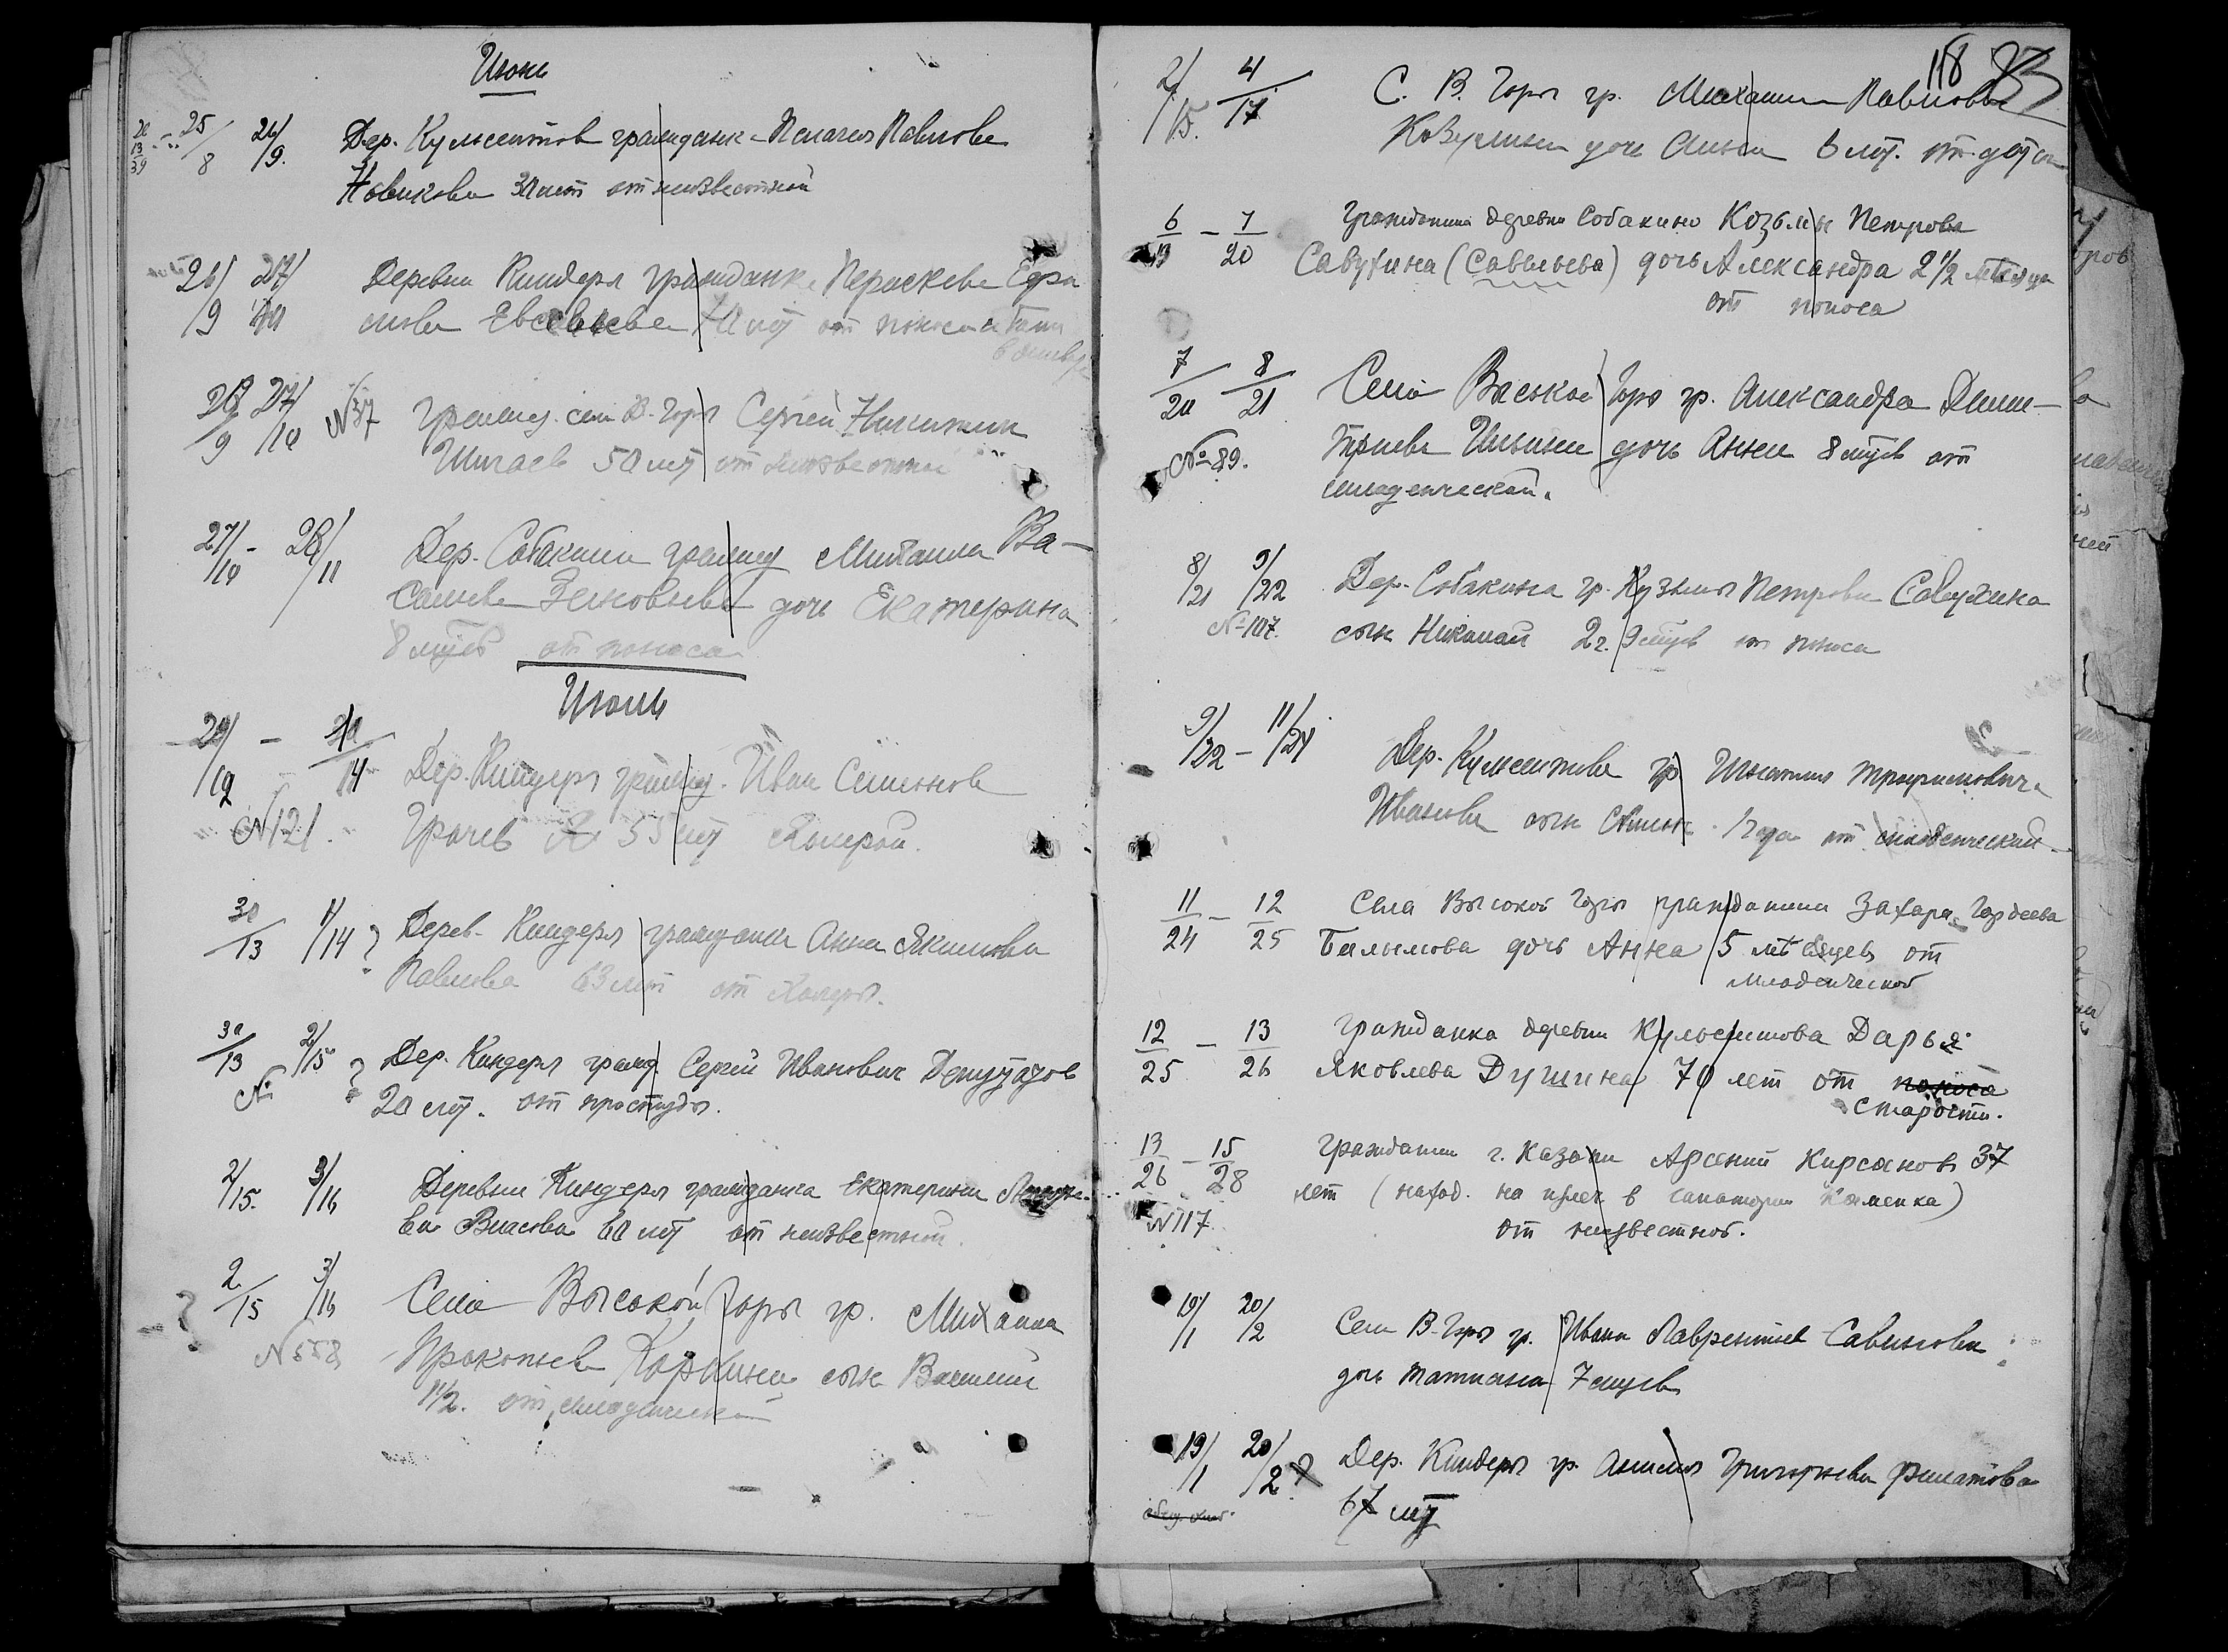 Июнь
25/8 26/9. Дер. Кульсеитов гражданк- Пелагея Павлова
Новикова 30 лет от неизвестной
26/9 27/10 Деревни Киндеры гражданка Пераскева Ефи
мова Евсевьева 70 лет от поноса
26/9 27/10 №37 Гражд. села В-Горы Сергей Никитин
Шигаев 50 лет от неизвестной
27/10 - 28/11 Дер. Собакина гражд Михаила Ва-
сильева Зиновьева дочь Екатерина
8 муев от поноса
Июль
29/12 - /14 Дер. Киндеры гражд. Иван Семенов
№121. Грачев 55 лет холерой.
30/13 1/14 ? Дерев- Киндеры гражданка Анна Якимова
Павлова 63 лет от холеры.
30/13 2/15 ? Дер. Киндеры гражд Сергей Иванович Депутатов
№ 20 лет. от простуды.
2/15. 3/16 Деревни Киндеры гражданка Екатерина
ва Власова 60 лет от неизвестной.
2/15 3/16 Села Высокой Горы гр. Михаила
№558 Прокопьев сын Василий
1 1/2. от младенческой
118
2/15. 4/17 С. В. Горы гр. Михаила Павлова
дочь Анна 6 лет. от
6/19 - 7/20 Гражданина деревни Собакино Козьмы Петрова
Савухина (Савельева) дочь Александра 2 1/2 месяца
от поноса
7/20 8/21 Села Высокой Горы гр. Александра Дими-
№89. триева Ильина дочь Анна 8 муев от
младенческой.
8/21 9/22 Дер. Собакина гр. Кузьмы Петрова Савухина
№107. сын Николай 2 г. 9 муев от поноса
9/22 - 11/24 Дер. Кульсеитова гр Игнатия Трофимовича
Иванова сын 1 года от младенческий
11/24 - 12/25 Села Высокой Горы гражданина Захара Гордеева
Балымова дочь Анна 5 месяцев от
младенческой
12/25 - 13/26 Гражданка деревни Кульсеитова Дарья
Яковлева Душина 70 лет от поноса
старости.
13/26 - 15/28 Гражданин г. Казани Арсений Кирсанов 37
лет (наход. на излеч в санатории Каменка)
№117. от неизвестной.
19/1 20/2 Села В-Горы гр. Ивана Лаврентьев Савинова
дочь Татиана 7 муев
19/1 20/2 ? Дер. Киндеры гр. Анисия Григорьева Филатова
67 лет